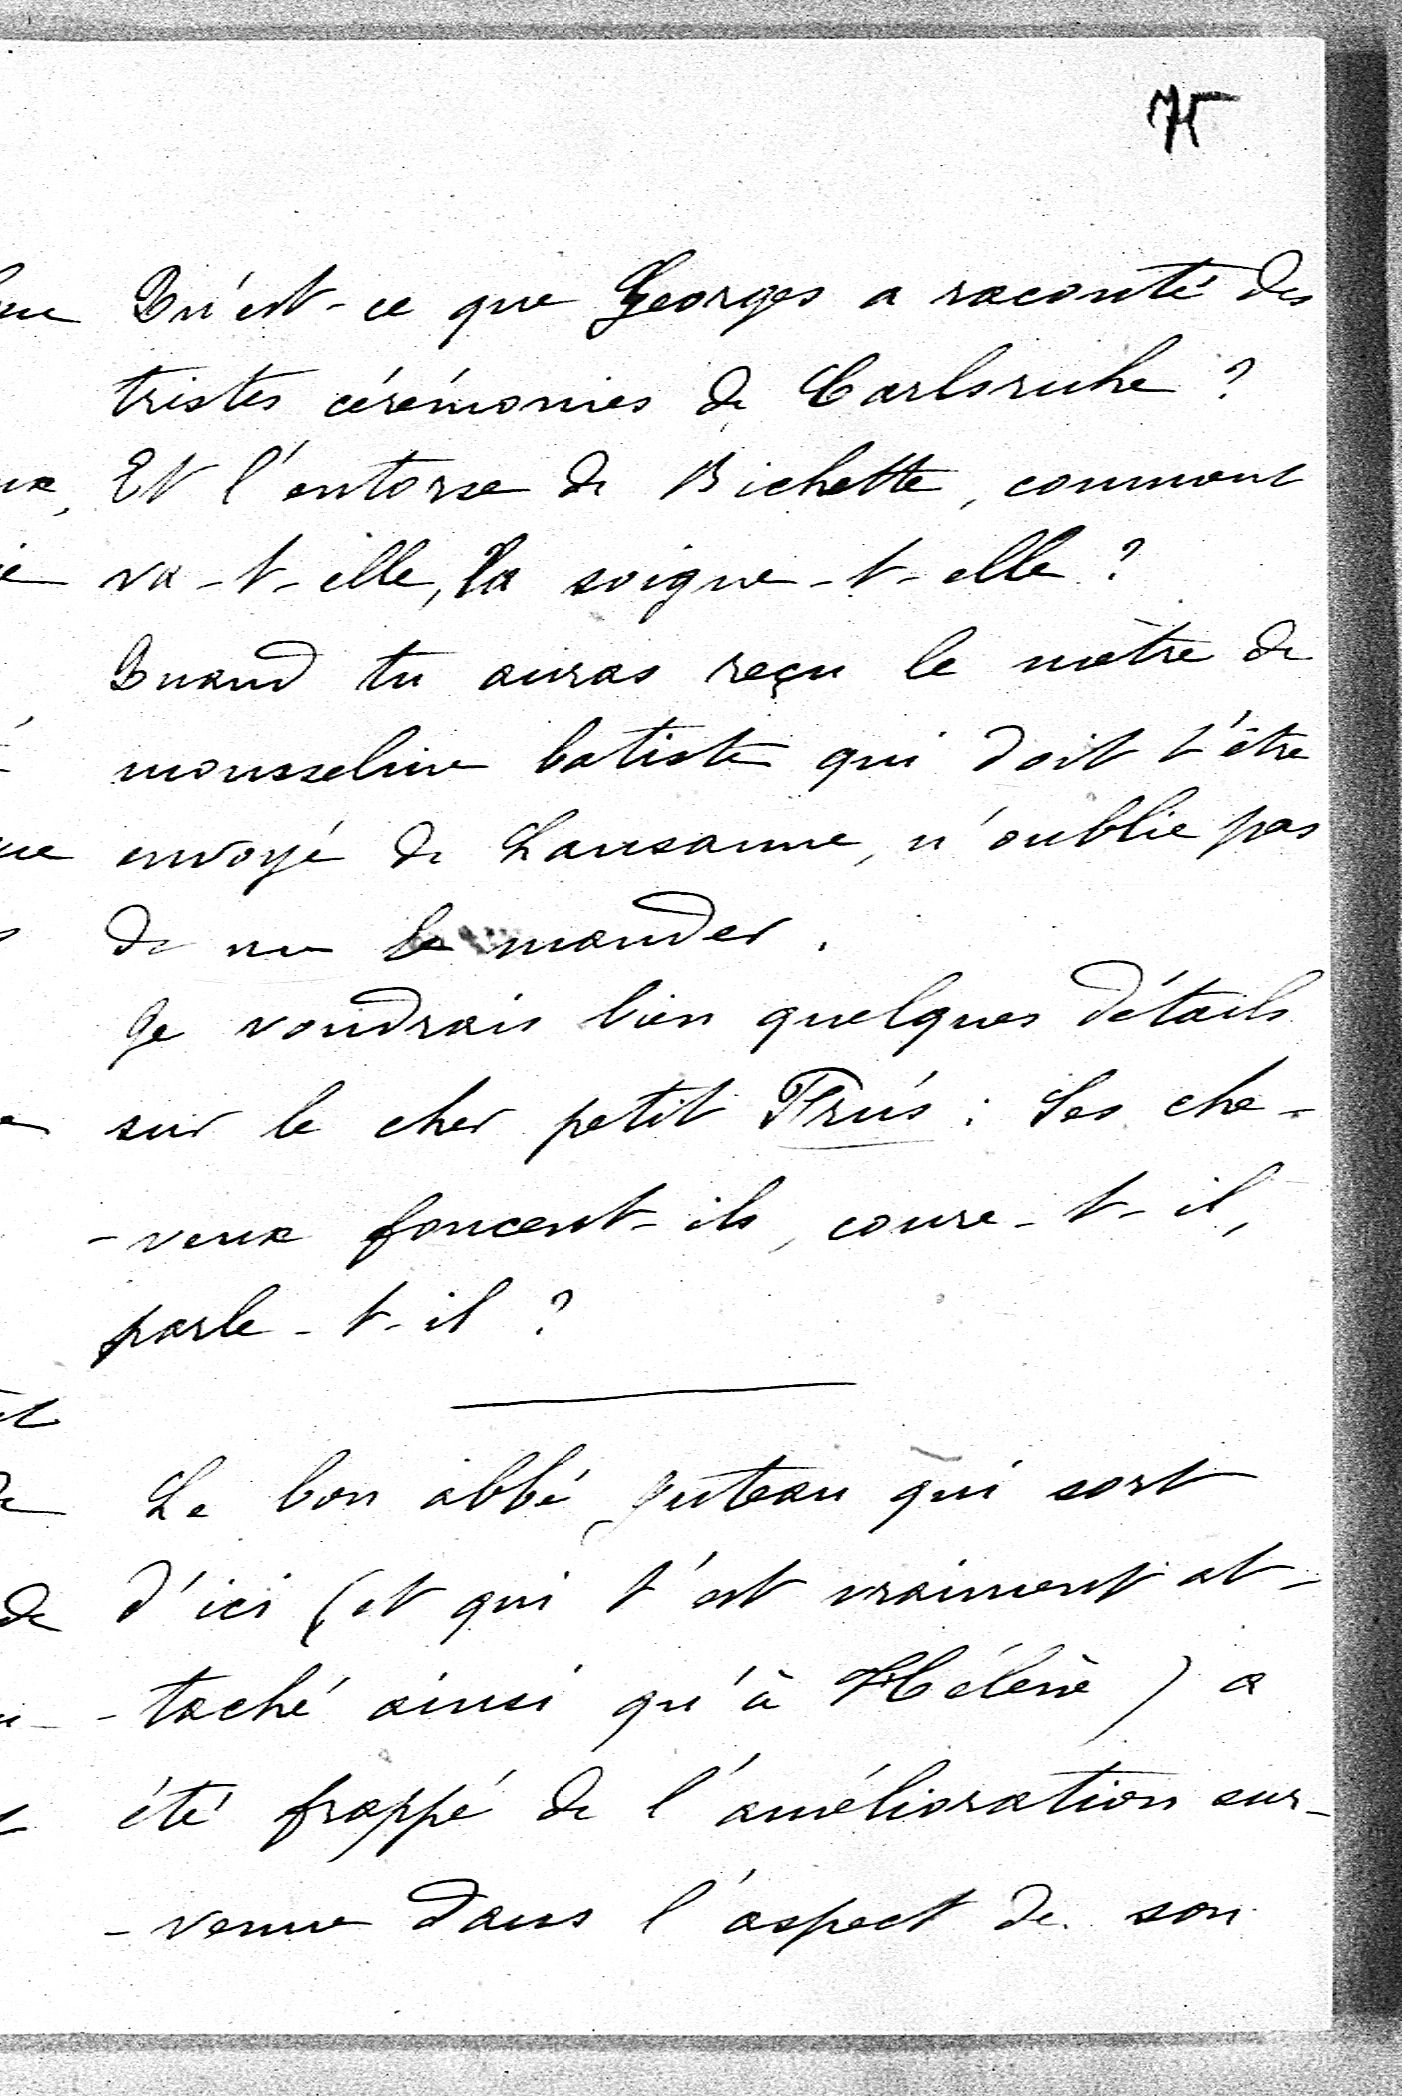 75
Qu'est-ce que Georges a raconté des
tristes cérémonies de Carlsruhe ?
Et l'entorse de Bichette, comment
va-t-elle, la soigne-t-elle ?
Quand tu auras reçu le mètre de
mousseline batiste qui doit t'être
envoyé de Lausanne, n'oublie pas
de me le mander.
Je voudrais bien quelques détails
sur le cher petit : Ses che-
-veux foncent-ils, coure-t-il,
parle-t-il ?
Le bon abbé qui sort
d'ici (et qui t'est vraiment at-
-taché ainsi qu'à Hélène) a
été frappé de l'amélioration sur-
-venue dans l'aspect de son